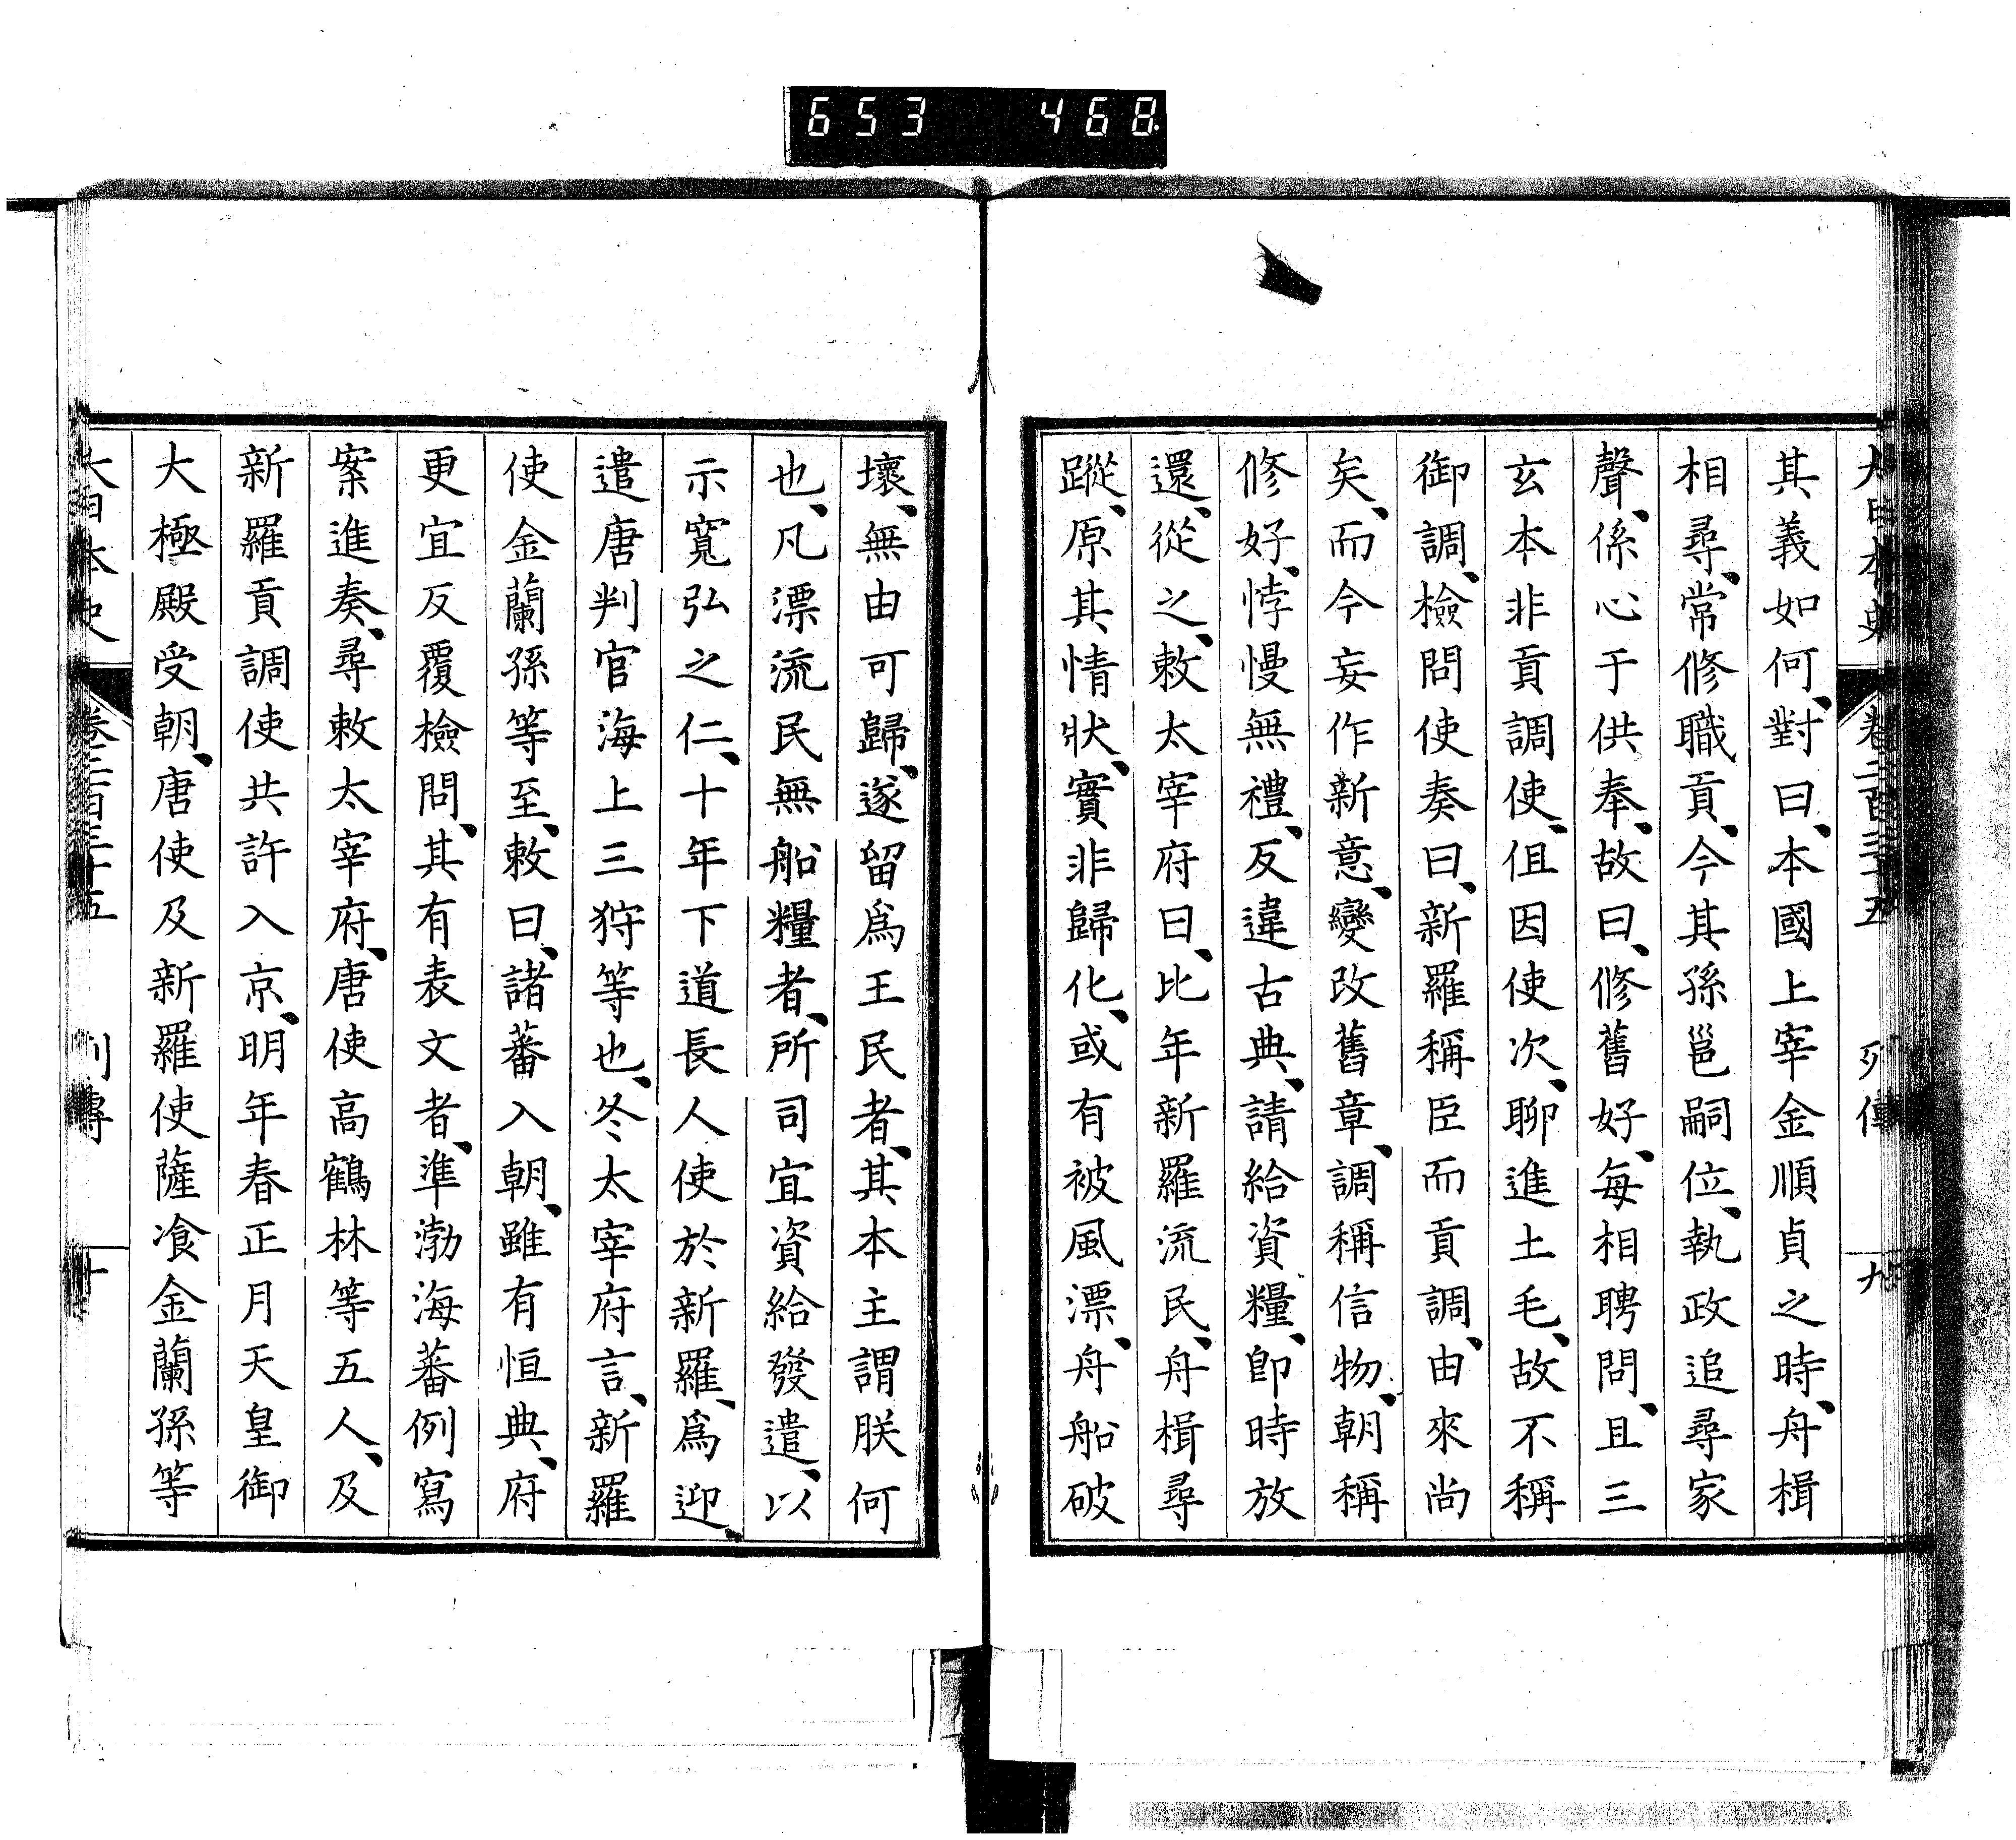 653 468
大日本史 卷二百三十五 列傳 九
其義如何、對曰、本國上宰金順貞之時、舟楫
相尋、常修職貢、今其孫邕嗣位、執政追尋家
聲、係心于供奉、故曰、修舊好、每相聘問、且三
玄本非貢調使、但因使次、聊進土毛、故不稱
御調、檢問使奏曰、新羅稱臣而貢調、由來尚
矣、而今妄作新意、變改舊章、調稱信物、朝稱
修好、悖慢無禮、反違古典、請給資糧、即時放
還、從之、敕太宰府曰、比年新羅流民、舟楫尋
蹤、原其情狀、實非歸化、或有被風漂、舟船破
壞、無由可歸、遂留爲王民者、其本主謂朕何
也、凡漂流民無船糧者、所司宜資給發遣、以
示寬弘之仁、十年下道長人使於新羅、爲迎
遣唐判官海上三狩等也、冬太宰府言、新羅
使金蘭孫等至、敕曰、諸蕃入朝、雖有恒典、府
更宜反覆檢問、其有表文者、準渤海蕃例寫
案進奏、尋敕太宰府、唐使高鶴林等五人、及
新羅貢調使共許入京、明年春正月天皇御
大極殿受朝、唐使及新羅使薩飡金蘭孫等
大日本史 卷二百三十五 列傳 十